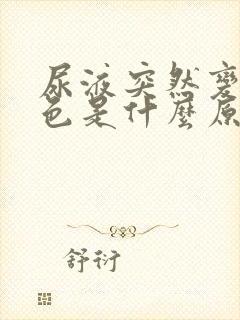 尿液突然变
色是什麼原
舒衍